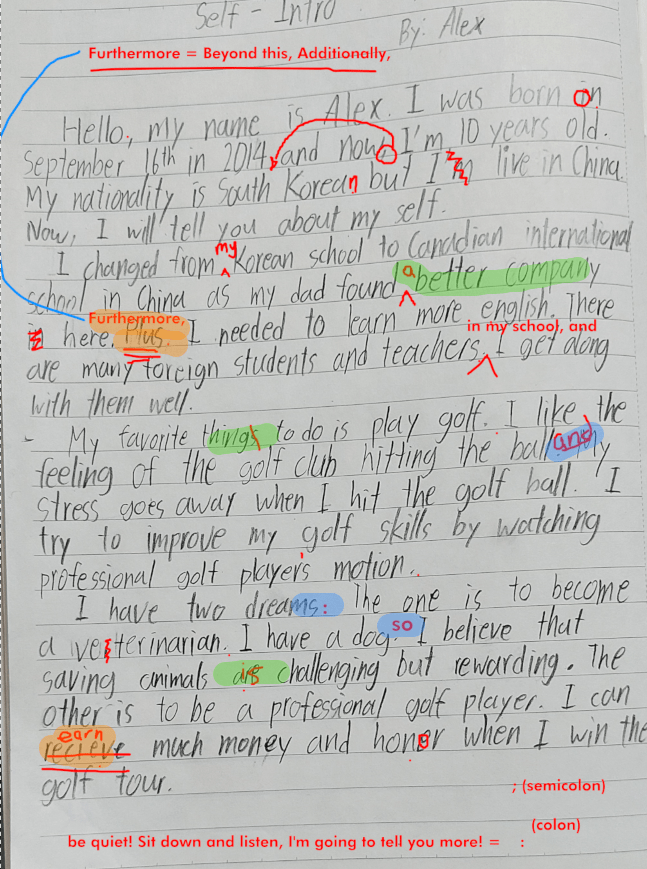 Self - Intro
By: Alex
Furthermore = Beyond this, Additionally,
Hello, my name is Alex. I was born in
September 16th in 2014, and now, I'm 10 years old.
My nationality is South Korean but I'm live in China.
Now, I will tell you about my self.
my
I changed from Korean school to Canadian international
school in China as my dad found a better company
Furthermore,
here. Plus, I needed to learn more english. There
in my school, and
are many foreign students and teachers, I get along
with them well.
- My favorite things to do is play golf. I like the
feeling of the golf club hitting the ball and my
stress goes away when I hit the golf ball. I
try to improve my golf skills by watching
professional golf player's motion.
I have two dreams: The one is to become
a veterinarian. I have a dog so I believe that
saving animals is challenging but rewarding. The
other is to be a professional golf player. I can
earn
recieve much money and honor when I win the
golf tour.
; (semicolon)
(colon)
be quiet! Sit down and listen, I'm going to tell you more! = :